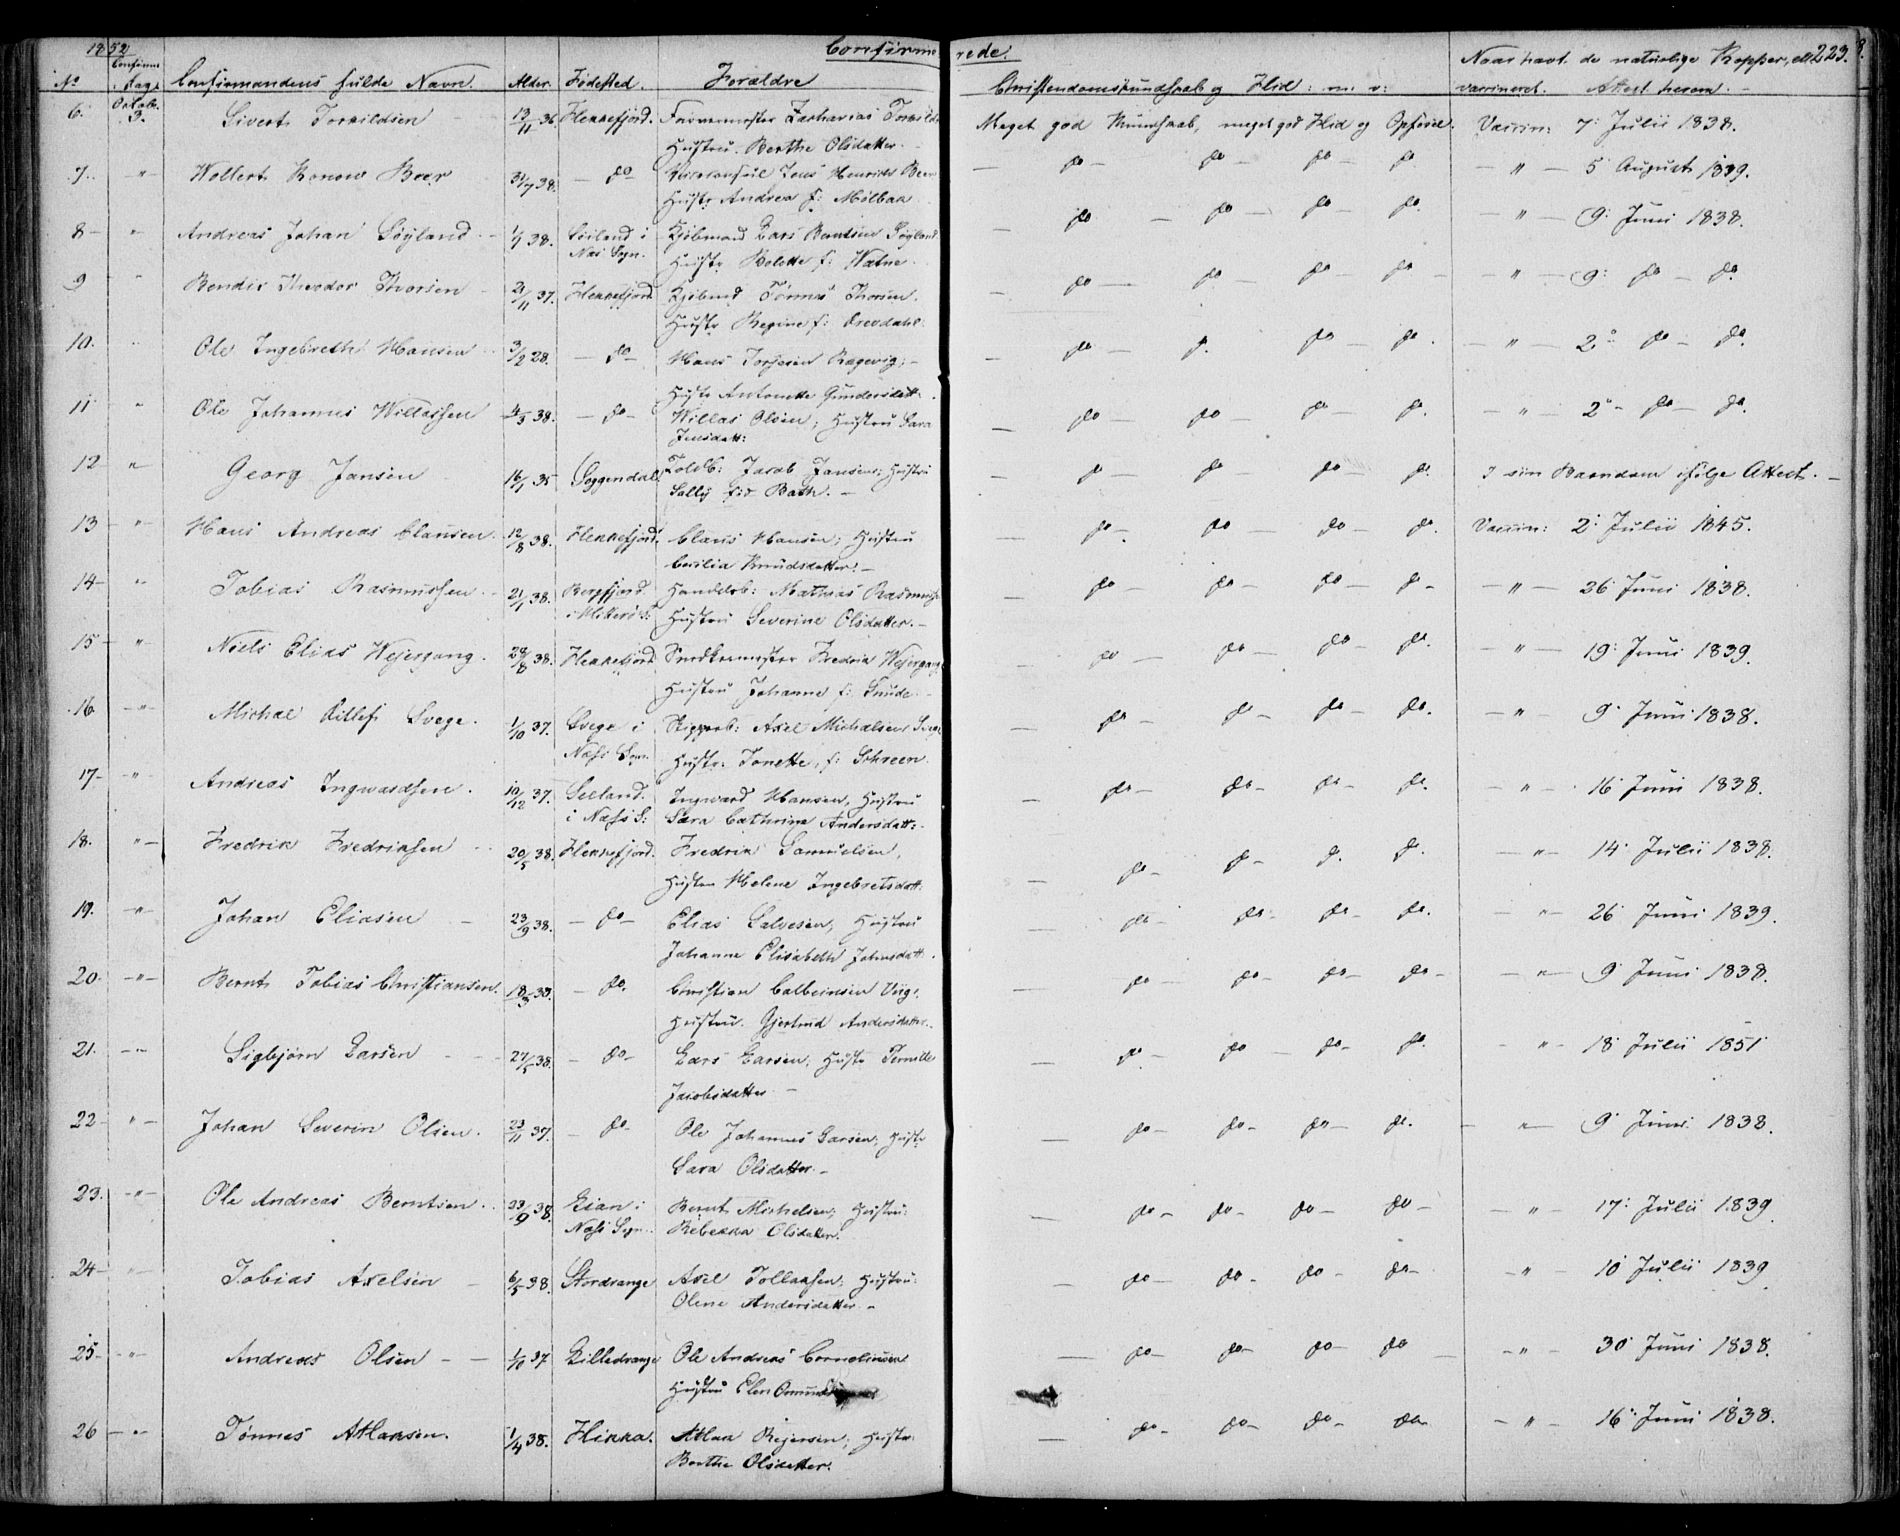 1852 Confirmerede. 223.
No Confirm. Dag. Confirmandens fulde Navn. Alder. Fødested. Forældre Christendomskundskab og Flid: m: v: Naar havt de naturlige Kopper, ell. vaccineret. Attest herom.
6. Octobr. 3. Sivert Torkildsen 13/11 36. Flekkefjord. Farvermester Zacharias Torkilds Meget god Kundskab, meget god Flid og Opførsel. Vaccin: 7 Julii 1838.
Hustru Berthe Olsdatter.
7. " Wollert Konow Beer 31/7 38. do Viceconsul Jens Henrich Beer do do do do " 5 August 1839.
Hustr Andrea f: Mølbach
8 " Andreas Johan Søyland 1/7 38. Søiland i Kjøbmand Lars Berntsen Søyland do do do do " 9 Juni 1838.
Næs Sogn. Hustr Bolette f: Watne
9 " Bendix Theodor Thorsen 21/11 37. Flekkefjord Kjøbmd Tønnes Thorsen. do do do do " 9: do do
Hustr Regine f: Drevdahl.
10. " Ole Ingebreth Hansen 3/2 28. do Hans Torjesen do do do do " 2 do do
Hustr Antonette Gundersdatt.
11 " Ole Johannes Willassen 4/3 38. do Willas Olsen; Hustru Sara do do do do " 2 do do
Jensdatt:
12 " Georg Jansen 16/1 35 Soggendal Toldb: Jacob Jansen; Hustru do do do do I sin Barndom ifølge Attest.
Sally fød Bath.
13 " Hans Andreas Clausen. 12/8 38. Flekkefjord. Claus Hansen; Hustru do do do do Vaccin: 2 Julii 1845.
Cecilia Knudsdatter.
14 " Tobias Rasmussen 21/1 38. Handelsb: Mathias Rasmuss do do do do " 26 Juni 1838.
Hustru Severine Olsdatter.
15 " Niels Elias Wejergang. 28/8 38. Flekkefjord Snedkermester Fredrik Wejergang do do do do " 19: Juni 1839.
Hustru Johanne f: Gnude.
16 " Michal Ditlef Svege. 1/10 37. Svege i Skipperb: Axel Michalsen Svege do do do do " 9 Juni 1838.
Næss Sogn. Hustr: Tonette, f: Schreen.
17 " Andreas Ingwardsen. 10/12 37. Selland. Ingward Hansen, Hustru do do do do " 16 Juni 1838.
i Næss S: Sara Cathrine Andersdatt:
18. " Fredrik Fredriksen 20/5 38. Flekkefjord. Fredrik Samuelsen, do do do do " 14 Julii 1838.
Hustru Helene Ingebretsdatt.
19. " Johan Eliasen 23/9 38. do Elias Salvesen, Hustru do do do do " 26 Juni 1839.
Johanne Elisabeth Johnsdatt.
20. " Bernt Tobias Christiansen. 18/3 38. do. Christian Colbeinsen do do do do " 9 Juni 1838.
Hustru. Gjertrud Andersdatter.
21. " Sigbjørn Larsen 27/5 38. do Lars Larsen; Hustr Pernille do do do do " 18 Julii 1851
Jacobsdatter
22 " Johan Severin Olsen. 23/11 37. do Ole Johannes Larsen; Hustr do do do do " 9 Juni 1838.
Sara Olsdatter.
23. " Ole Andreas Berntsen. 23/9 38. Lian i Bernt Michelsen; Hustru: do do do do " 17: Julii 1839
Næss Sogn. Rebekka Olsdatter.
24 " Tobias Axelsen 6/5 38. Stordrange Axel Tollaksen; Hustru: do do do do " 10 Julii 1839
Olene Andersdatter.
25 " Andreas Olsen 1/10 37 Lilledrange Ole Andreas Corneliussen do do do do " 30 Juni 1838.
Hustru Elen
26 " Tønnes Atlaksen. 1/4 38. Flikka. Atlak Rejersen; Hustr: do do do do " 16 Juni 1838.
Berthe Olsdatter.